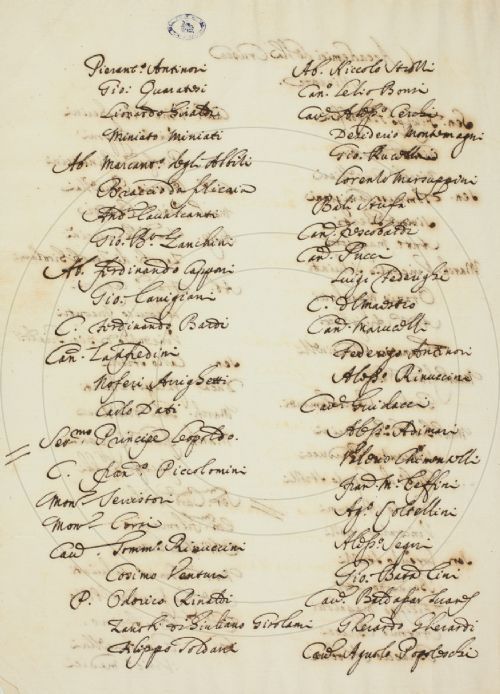 Pierant.o Antinori
Gio: Quaratesi
Lionardo Giraldi
Miniato Miniati
Ab. Marcant.o degli Albizi
Braccio da Ricasoli
And.a Cavalcanti
Gio: B.a Zanchini
Ab. Ferdinando Capponi
Gio: Cavigiani
C. Ferdinando Bardi
Can. Lanfredini
Noferi Arrighetti
Carlo Dati
Ser.mo Principe Leopoldo.
C. Fran.o Piccolomini
Mon.r Serristori
Mon.r Corsi
Cav. Tomm.o Rinuccini
Cosimo Venturi
P. Odorico Rinaldi
di Giuliano Girolami
Filippo Soldani
Ab. Niccolo Strozzi
Can.o Lelio Bonsi
Cav. Aless.o Cerchi
Desiderio Montemagni
Gio: Rucellai
Lorenzo Marsuppini
Bali Stufa
Can. Pescobaldi
Can. Pucci
Luigi Federighi
C. Del Maestro
Can. Marucelli
Federigo Antinori
Aless.o Rinuccini
Cav. Guidacci
Aless.o Adimari
Valerio Chimentelli
Fran. M.a Ceffini
Ag.o Coltellini
Aless.o Segni
Gio: Batta
Cav. Baldassar Suares
Gherardo Gherardi
Cav. Agnolo Popoleschi